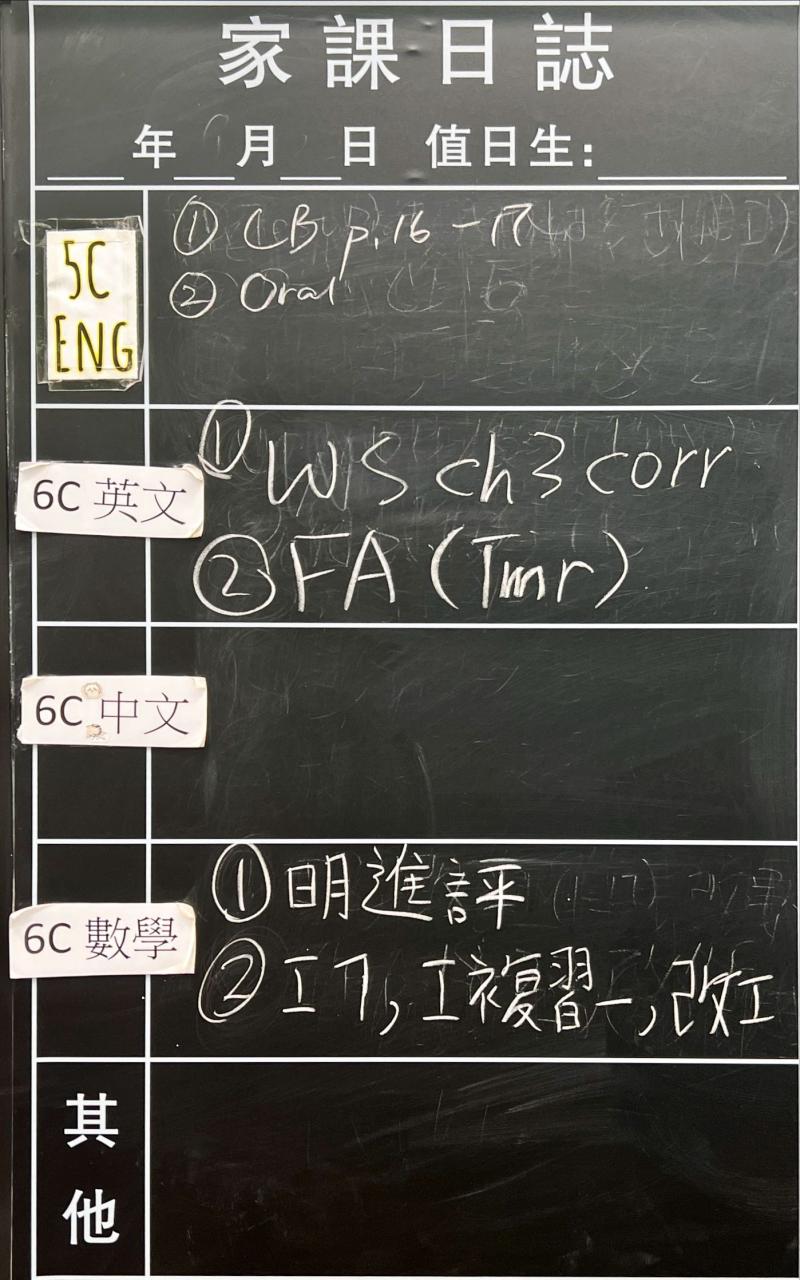 家課日誌
年 月 日 值日生:
5C
ENG
① CB p.16 - 17
② Oral
6C 英文
① WS ch3 corr
② FA (Tmr)
6C 中文
6C 數學
① 明進評
② 工7,工複習一,改工
其他